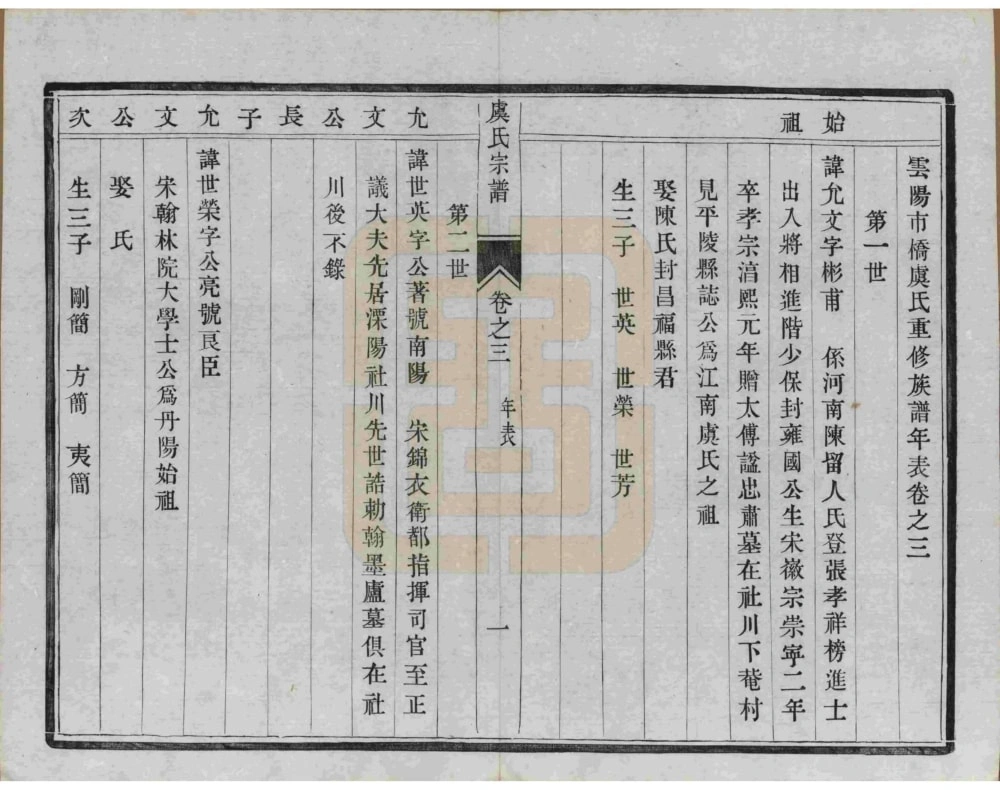 雲陽市橋虞氏重修族譜年表卷之三
第一世
始祖
諱允文字彬甫 係河南陳留人氏登張孝祥榜進士
出入將相進階少保封雍國公生宋徽宗崇寧二年
卒孝宗淳熙元年贈太傅諡忠肅墓在社川下菴村
見平陵縣誌公爲江南虞氏之祖
娶陳氏封昌福縣君
生三子 世英 世榮 世芳
虞氏宗譜 卷之三 年表 一
第二世
允文公長子
諱世英字公著號南陽 宋錦衣衛都指揮司官至正
議大夫先居溧陽社川先世誥勅翰墨廬墓俱在社
川後不錄
允文公次
諱世榮字公亮號良臣
宋翰林院大學士公爲丹陽始祖
娶 氏
生三子 剛簡 方簡 夷簡